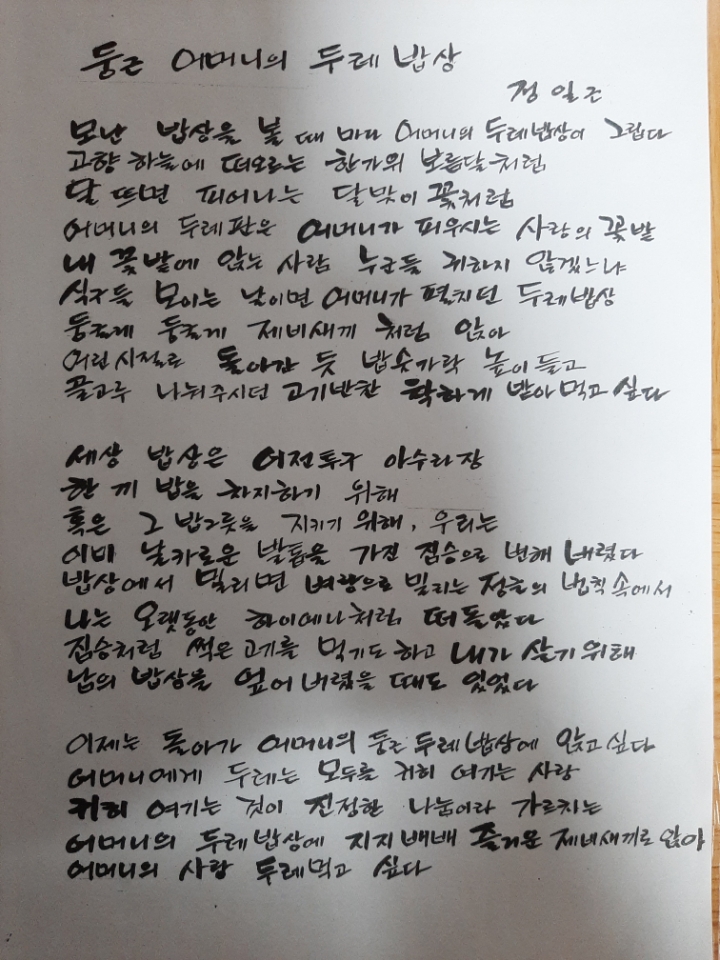 둥근 어머니의 두레 밥상
정일근
모난 밥상을 볼 때 마다 어머니의 두레밥상이 그립다
고향 하늘에 떠오르는 한가위 보름달처럼
달 뜨면 피어나는 달맞이꽃처럼
어머니의 두레판은 어머니가 피우시는 사랑의 꽃밭
내 꽃밭에 앉는 사람 누군들 귀하지 않겠느냐
식구들 모이는 날이면 어머니가 펼치던 두레밥상
둥글게 둥글게 제비새끼처럼 앉아
어린시절로 돌아간 듯 밥숫가락 높이 들고
골고루 나눠주시던 고기반찬 착하게 받아먹고 싶다
세상 밥상은 이전투구 아수라장
한 끼 밥을 차지하기 위해
혹은 그 밥그릇을 지키기 위해, 우리는
이미 날카로운 발톱을 가진 짐승으로 변해 버렸다
밥상에서 밀리면 벼랑으로 밀리는 정글의 법칙 속에서
나는 오랫동안 하이에나처럼 떠돌았다
짐승처럼 썩은 고기를 먹기도 하고 내가 살기 위해
남의 밥상을 엎어 버렸을 때도 있었다
이제는 돌아가 어머니의 둥근 두레밥상에 앉고 싶다
어머니에게 두레는 모두를 귀히 여기는 사랑
귀히 여기는 것이 진정한 나눔이라 가르치는
어머니의 두레밥상에 지지배배 즐거운 제비새끼로 앉아
어머니의 사랑 두레먹고 싶다